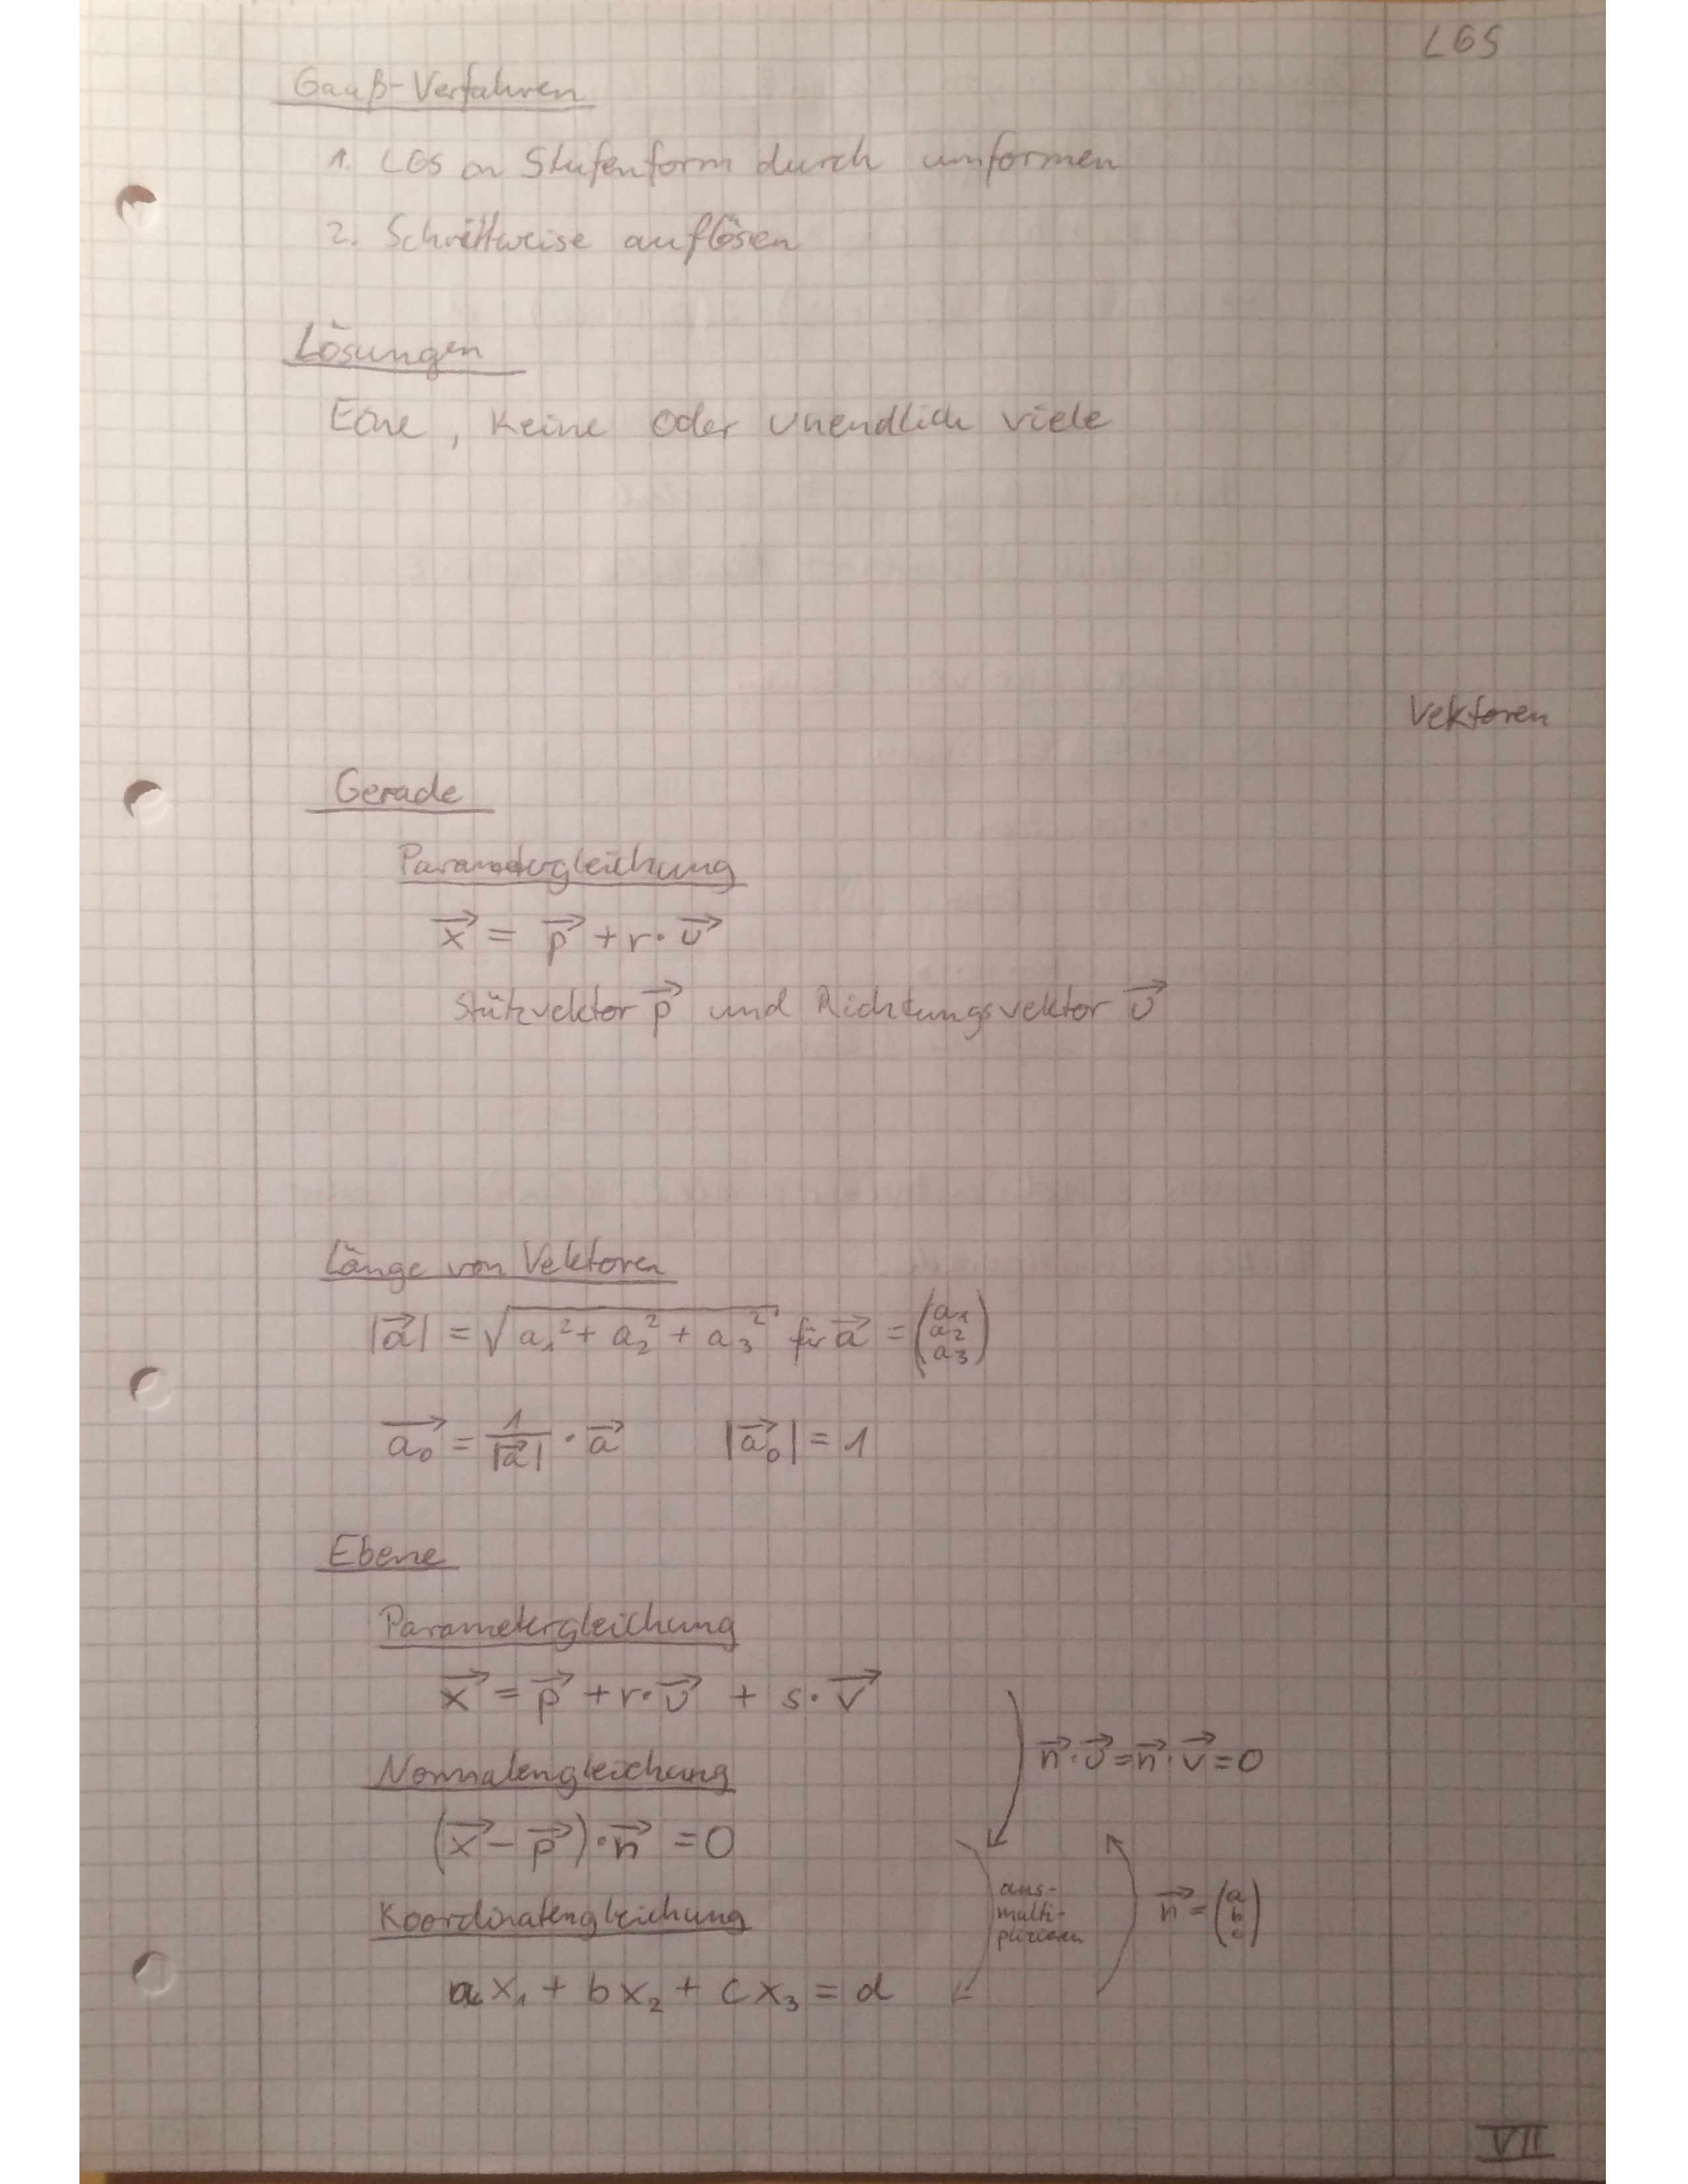 LGS
Gauß-Verfahren
1. LGS in Stufenform durch umformen
2. Schrittweise auflösen
Lösungen
Eine, Keine oder unendlich viele
Vektoren
Gerade
Parametergleichung
x⃗ = p⃗ + r · u⃗
Stützvektor p⃗ und Richtungsvektor u⃗
Länge von Vektoren
|a⃗| = √(a₁² + a₂² + a₃²) für a⃗ = (a₁ a₂ a₃)
a₀⃗ = 1/|a⃗| · a⃗   |a₀⃗| = 1
Ebene
Parametergleichung
x⃗ = p⃗ + r · u⃗ + s · v⃗
n⃗ · u⃗ = n⃗ · v⃗ = 0
Normalengleichung
(x⃗ − p⃗) · n⃗ = 0
aus-
multi-
plizieren
n⃗ = (a b c)
Koordinatengleichung
ax₁ + bx₂ + cx₃ = d
VII